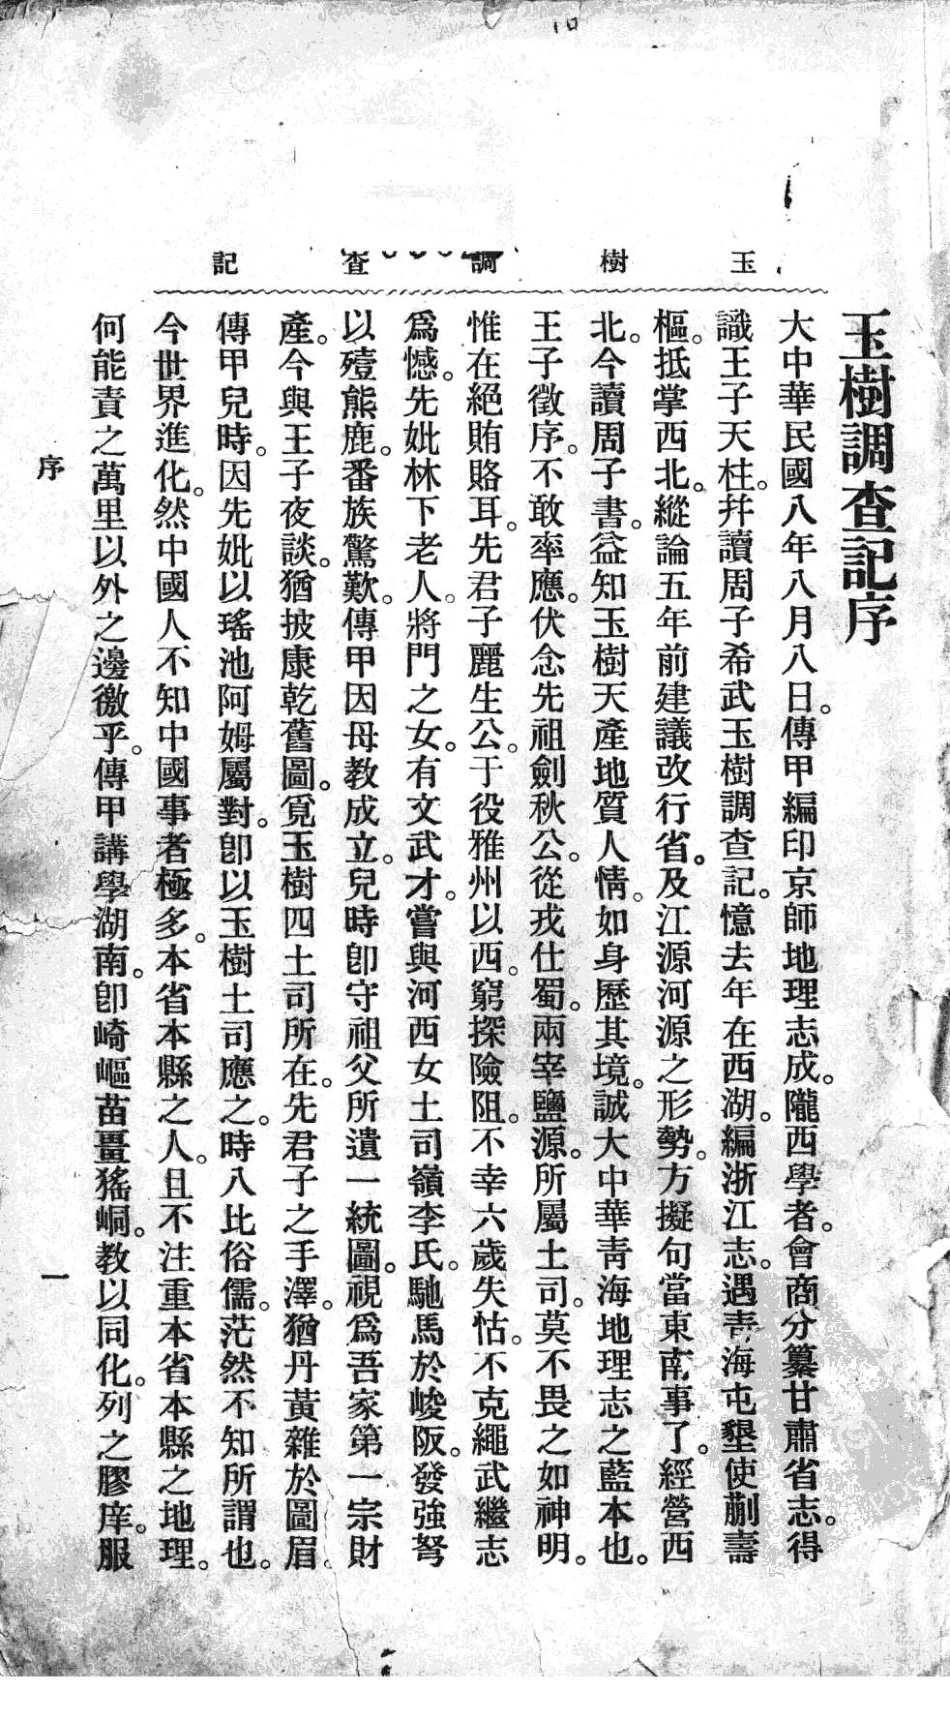 玉樹調查記
玉樹調查記序
大中華民國八年八月八日。傳甲編印京師地理志成。隴西學者。會商分纂甘肅省志。得
識王子天柱。幷讀周子希武玉樹調查記。憶去年在西湖。編浙江志。遇靑海屯墾使蒯壽
樞。抵掌西北。縱論五年前建議改行省。及江源河源之形勢。方擬句當東南事了。經營西
北。今讀周子書。益知玉樹天產地質人情。如身歷其境。誠大中華靑海地理志之藍本也。
王子徵序。不敢率應。伏念先祖劍秋公。從戎仕蜀。兩宰鹽源。所屬土司。莫不畏之如神明。
惟在絕賄賂耳。先君子麗生公。于役雅州以西。窮探險阻。不幸六歲失怙。不克繩武繼志
爲憾。先妣林下老人。將門之女。有文武才。嘗與河西女土司嶺李氏。馳馬於峻阪。發強弩
以殪熊鹿。番族驚歎。傳甲因母教成立。兒時卽守祖父所遺一統圖。視爲吾家第一宗財
產。今與王子夜談。猶披康乾舊圖。覓玉樹四土司所在。先君子之手澤。猶丹黃雜於圖眉。
傳甲兒時。因先妣以瑤池阿姆屬對。卽以玉樹土司應之。時八比俗儒。茫然不知所謂也。
今世界進化。然中國人不知中國事者極多。本省本縣之人。且不注重本省本縣之地理。
何能責之萬里以外之邊徼乎。傳甲講學湖南。卽崎嶇苗畺猺峒。教以同化。列之膠庠。服
序
一